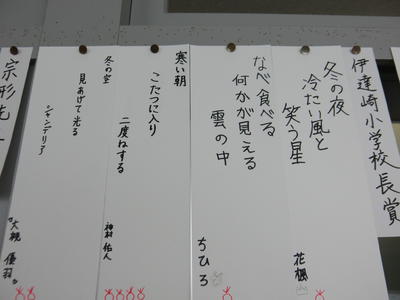 伊達崎小学校長賞
冬の夜
冷たい風と
笑う星
花楓
なべ食べる
何かが見える
雲の中
ちひろ
寒い朝
こたつに入り
二度ねする
神村佑人
冬の空
見あげて光る
シャンデリア
大槻優羽
宗形先